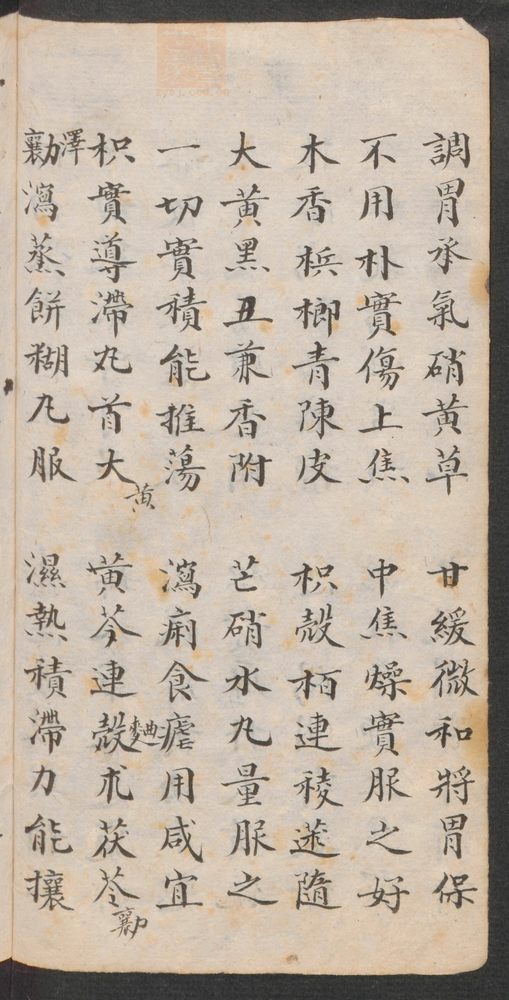 調胃承氣硝黃草　甘緩微和將胃保
不用朴實傷上焦　中焦燥實服之好
木香梹榔青陳皮　枳殼栢連稜蒁隨
大黃黑丑兼香附　芒硝水丸量服之
一切實積能推蕩　瀉痢食瘧用咸宜
枳實導滯丸首大黃　黃芩連殼麯朮茯苓勷
澤瀉蒸餅糊丸服　濕熱積滯力能攘